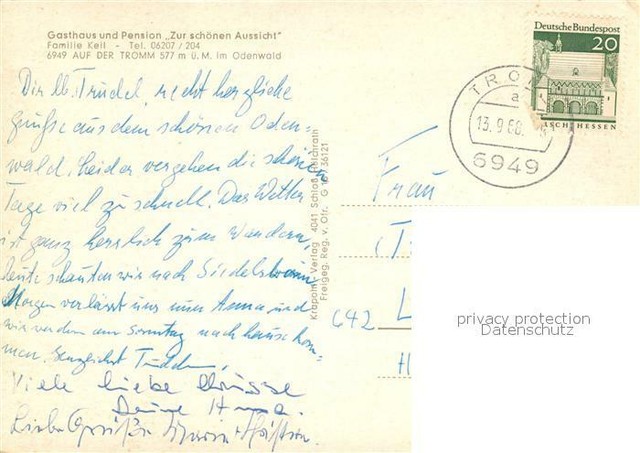 Gasthaus und Pension „Zur schönen Aussicht"
Familie Keil - Tel. 06207 / 204
6949 AUF DER TROMM 577 m ü. M. im Odenwald
Dir lb. Trudel, recht herzliche
Grüße aus dem schönen Oden-
wald. Leider vergehen die schönen
Tage viel zu schnell. Das Wetter
ist ganz herrlich zum Wandern,
heute schauten wir nach
Morgen verlässt uns nun Anna und
wir werden am Sonntag nach hause kom-
men.
Viele liebe Grüsse
Deine Anna.
Liebe Grüße Maria
Krapohl Verlag 4041 Schloß Hülchrath
Freigeg. Reg. v. Ofr. G
36121
Deutsche Bundespost
20
LORSCH HESSEN
TROMM
a
13.9.68
6949
Frau
(
L
642
H
privacy protection
Datenschutz